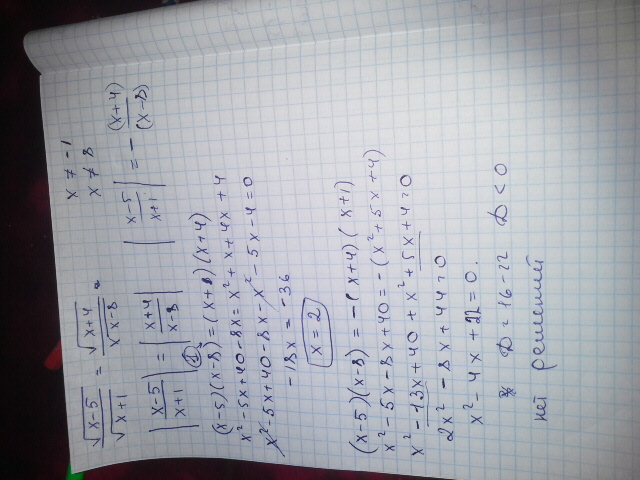 √(x-5) / √(x+1) = √(x+4) / √(x-8) x ≠ -1
x ≠ 8
|(x-5)/(x+1)| = |(x+4)/(x-8)| |(x-5)/(x+1)| = - (x+4)/(x-8)
① (x-5)(x-8) = (x+1)(x+4)
x²-5x+40-8x = x²+x+4x+4
x²-5x+40-8x-x²-5x-4=0
-18x = -36
x = 2
(x-5)(x-8) = -(x+4)(x+1)
x²-5x-8x+40 = -(x²+5x+4)
x²-13x+40+x²+5x+4=0
2x²-8x+44=0
x²-4x+22=0.
D=16-22 D<0
нет решений